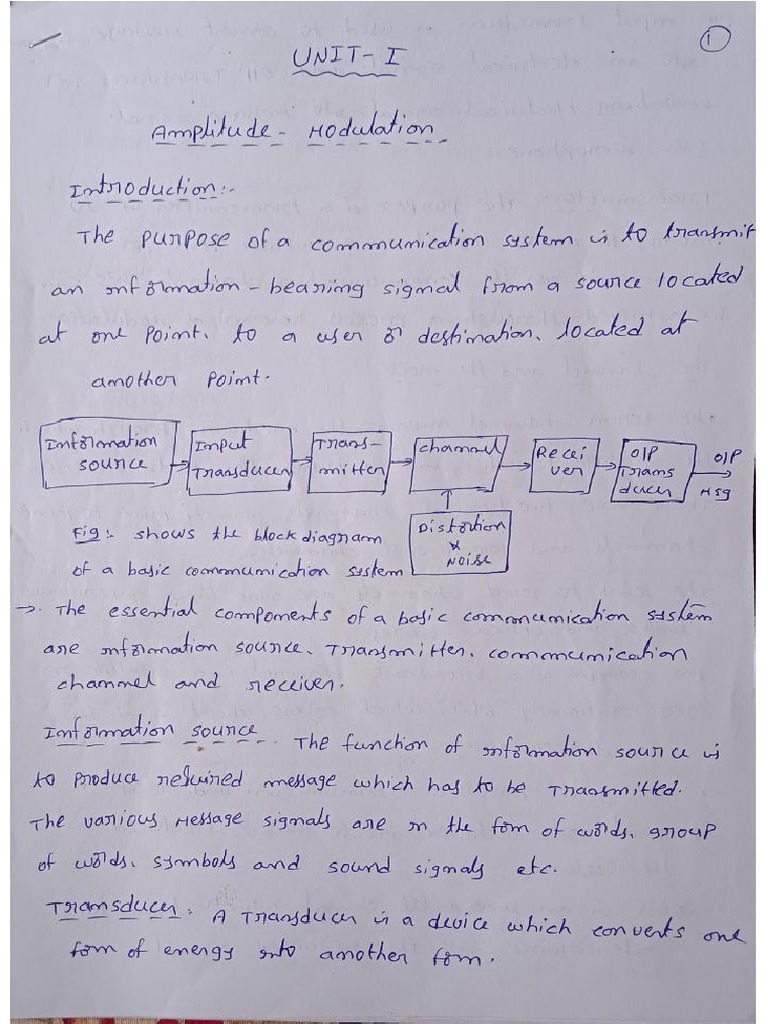 1
UNIT-I
Amplitude - Modulation
Introduction:-
The purpose of a communication system is to transmit
an information - bearing signal from a source located
at one point, to a user or destination, located at
another point.
Information source
Input Transducer
Trans-mitter
channel
Recei ver
O/P Trans ducer
O/P Msg
Distortion & Noise
Fig:- shows the block diagram
of a basic communication system
→. The essential components of a basic communication system
are information source, Transmitter, communication
channel and receiver.
Information source. The function of information source is
to produce required message which has to be Transmitted.
The various Message signals are in the form of words, group
of words, symbols and sound signals etc.
Transducer: A Transducer is a device which converts one
form of energy into another form.